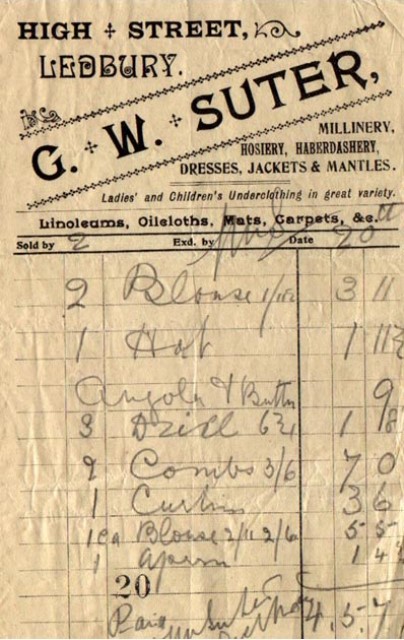 HIGH STREET,
LEDBURY.
G. W. SUTER,
MILLINERY,
HOSIERY, HABERDASHERY,
DRESSES, JACKETS & MANTLES.
Ladies' and Children's Underclothing in great variety.
Linoleums, Oilcloths, Mats, Carpets, &c.
Sold by 2 Exd. by Date 20th
2 Blouse 3 11
1 Hat 1 11½
Angola & Buttn 9
3 Drill 6¾ 1 8
2 Combs 3/6 7 0
1 Curtin 3 6
1 ea Blouse 2/11 2/6 5 5
1 apern 1 4
20
Paid Suter 4.5.7